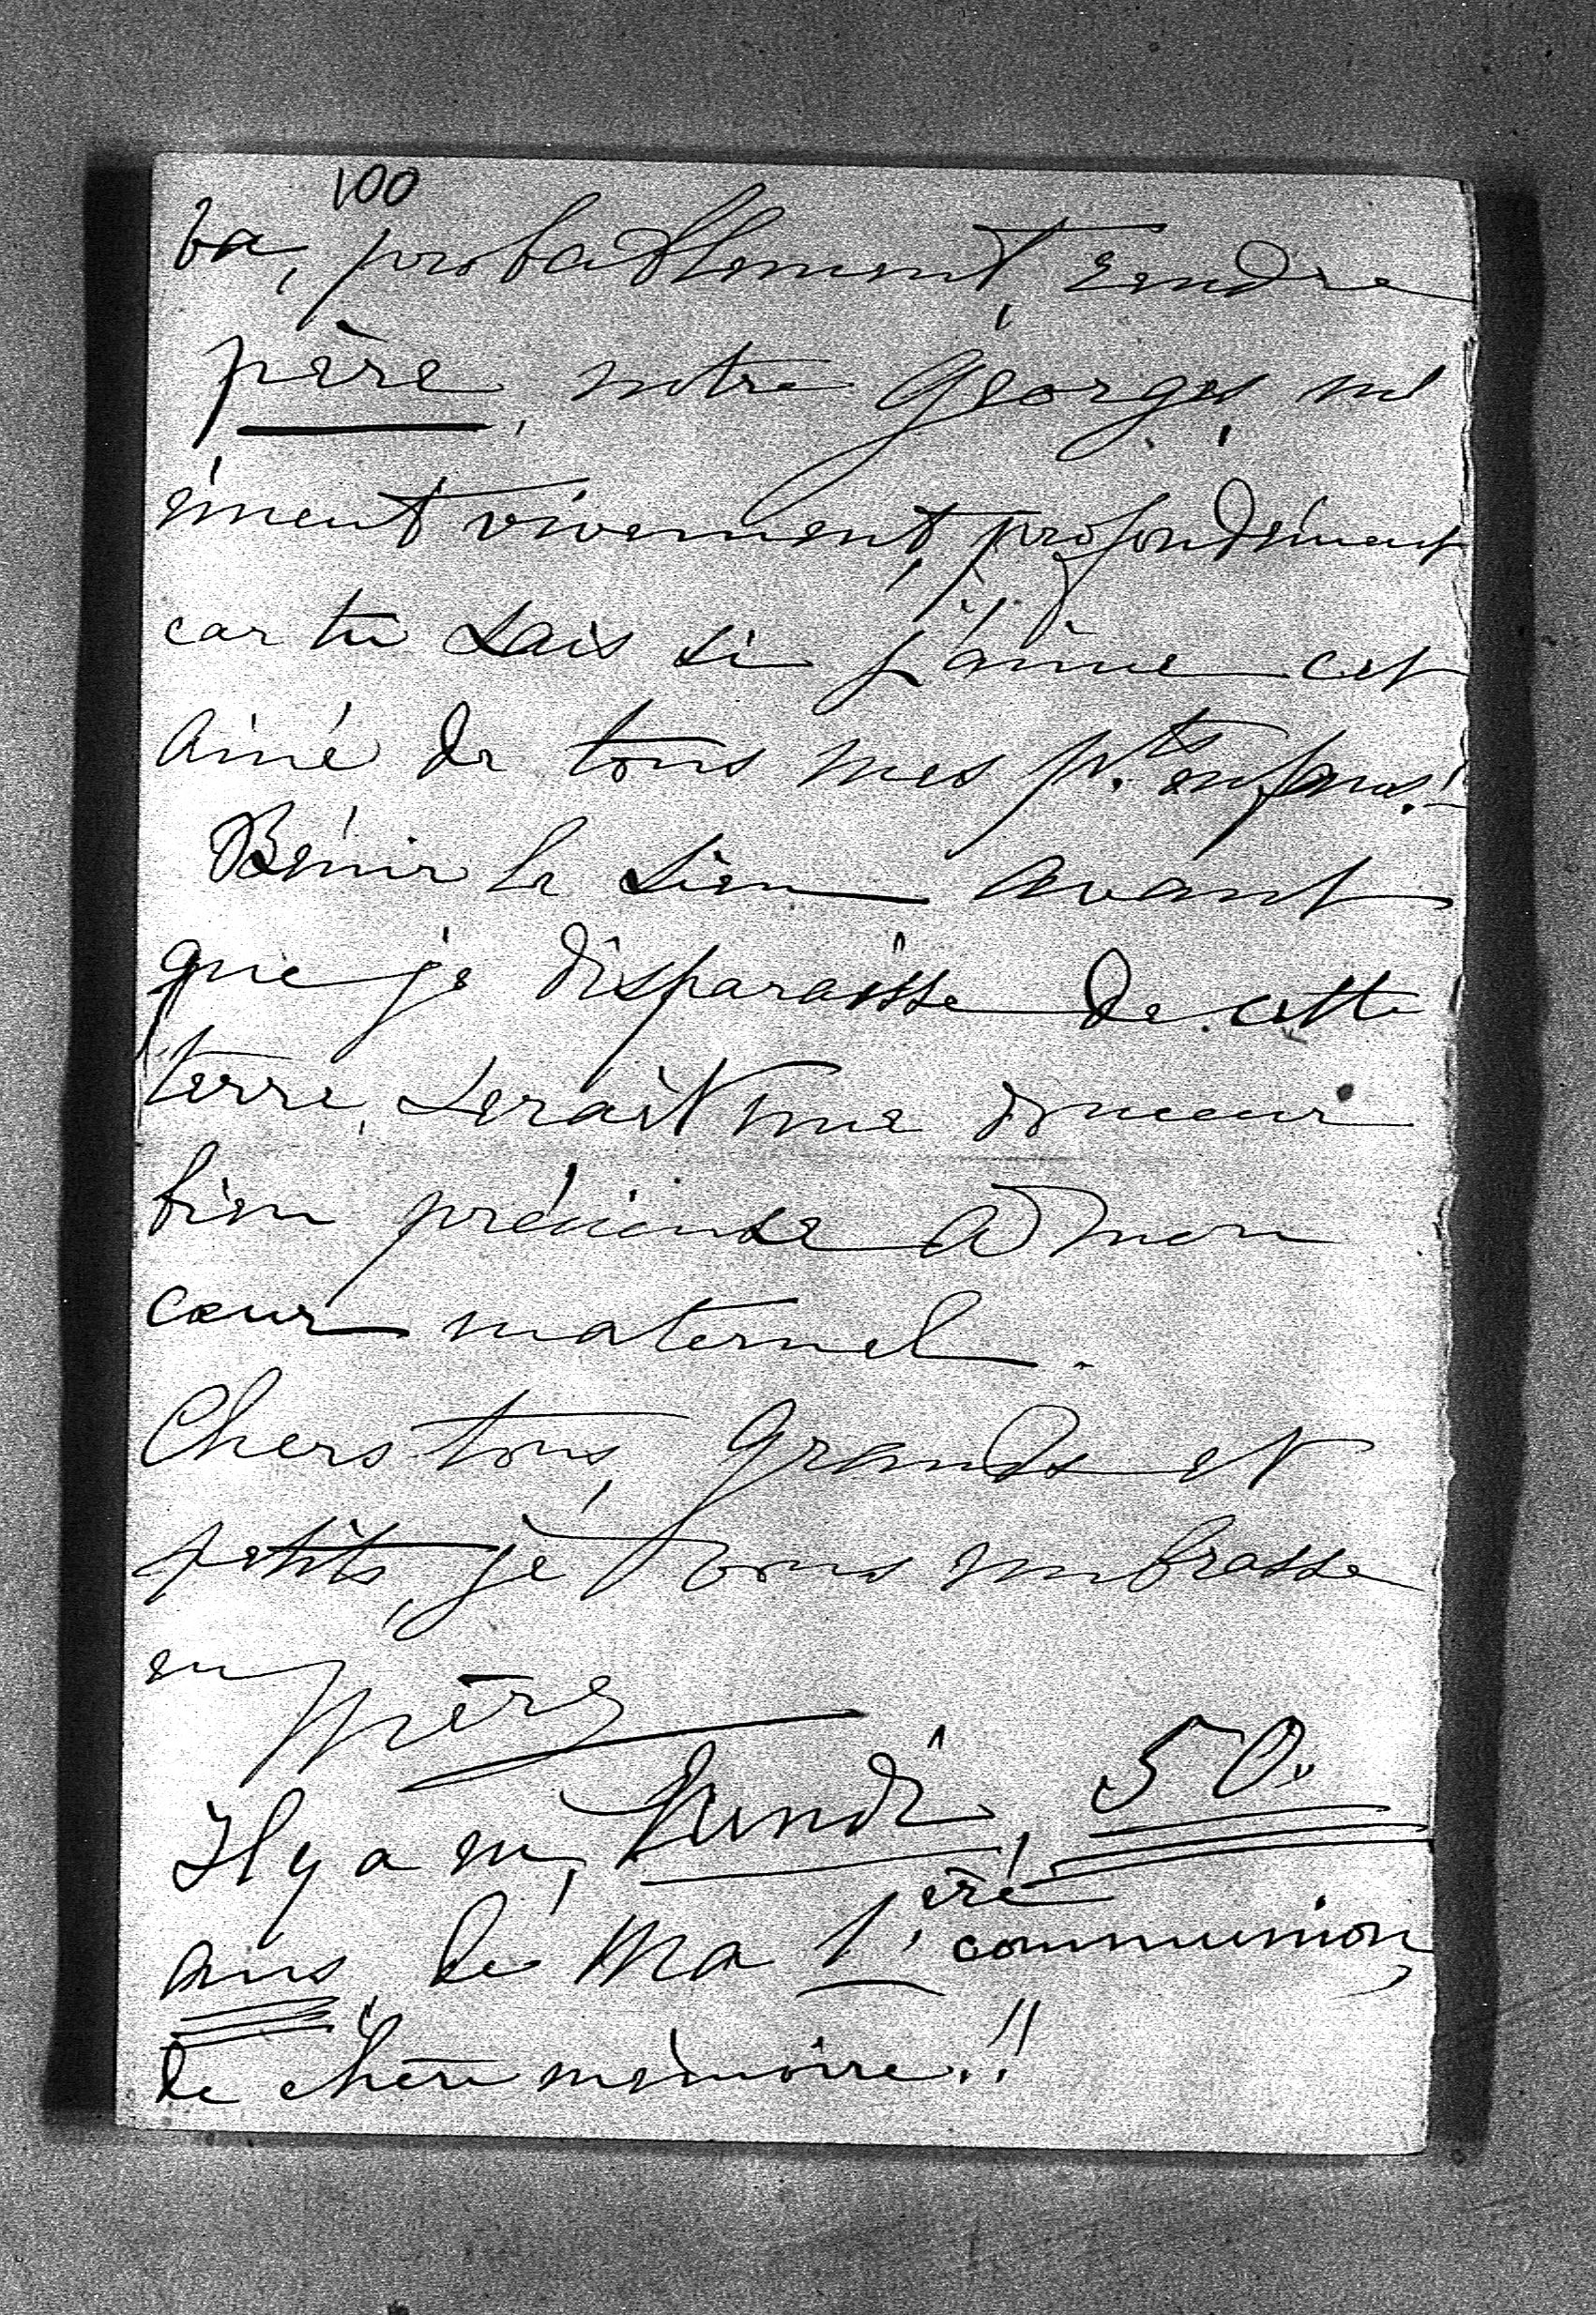 100
va, probablement, rendre
père, notre Georges, m'
émeut vivement, profondément
car tu sais si j'aime cet
ainé de tous mes p.ts enfans!
Bénir le sien avant
que je disparaisse de cette
terre, serait une douceur
bien précieuse à mon
cœur maternel.
Chers tous, grands et
petits, je vous embrasse
en mère
Il y a eu, Lundi, 50
ans, de ma 1.ère communion
de chère mémoire!!